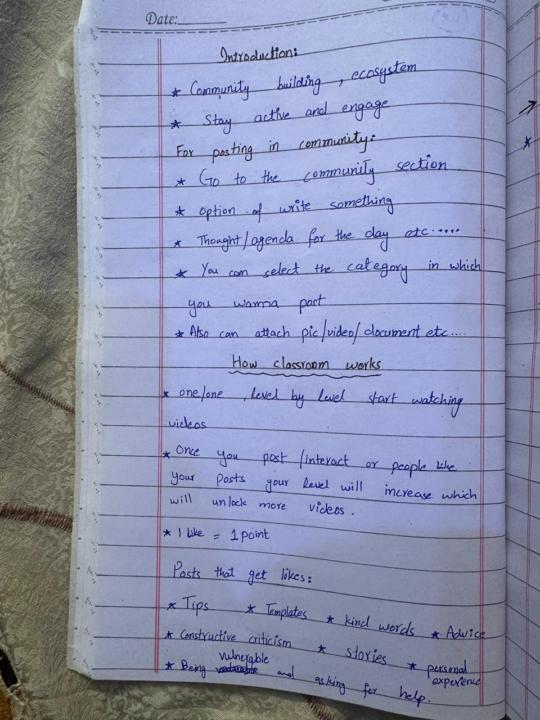 Date:
Introduction:
* Community building, ecosystem
* Stay active and engage
For posting in community:
* Go to the community section
* option of write something
* Thought/agenda for the day etc.....
* You can select the category in which
you wanna post
* Also can attach pic/video/document etc....
How classroom works
* one/one, level by level start watching
videos
* Once you post/interact or people like
your posts your level will increase which
will unlock more videos.
* 1 like = 1 point
Posts that get likes:
* Tips * Templates * kind words * Advice
* Constructive criticism * stories * personal experience
* Being vulnerable and asking for help.